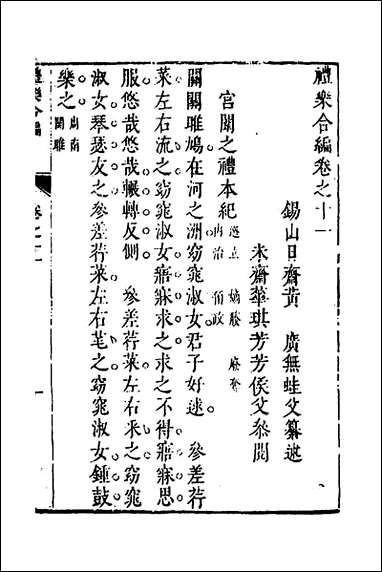 禮樂合編卷之十一
錫山日齋黃 廣無蛙父纂述
未齋華琪芳芳侯父叅閱
宮闈之禮本紀 選立 嫡媵 廢奪 內治 預政
關關雎鳩在河之洲窈窕淑女君子好逑 參差荇
菜左右流之窈窕淑女寤寐求之求之不得寤寐思
服悠哉悠哉輾轉反側 參差荇菜左右采之窈窕
淑女琴瑟友之參差荇菜左右芼之窈窕淑女鍾鼓
樂之 周南 關雎
禮樂合編
卷之十一
一